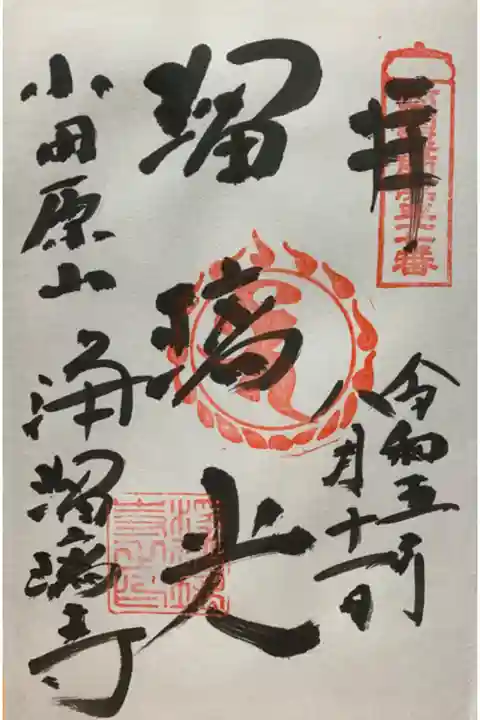 奉拝
令和五年
八月十一日
瑠璃光
小田原山 浄瑠璃寺